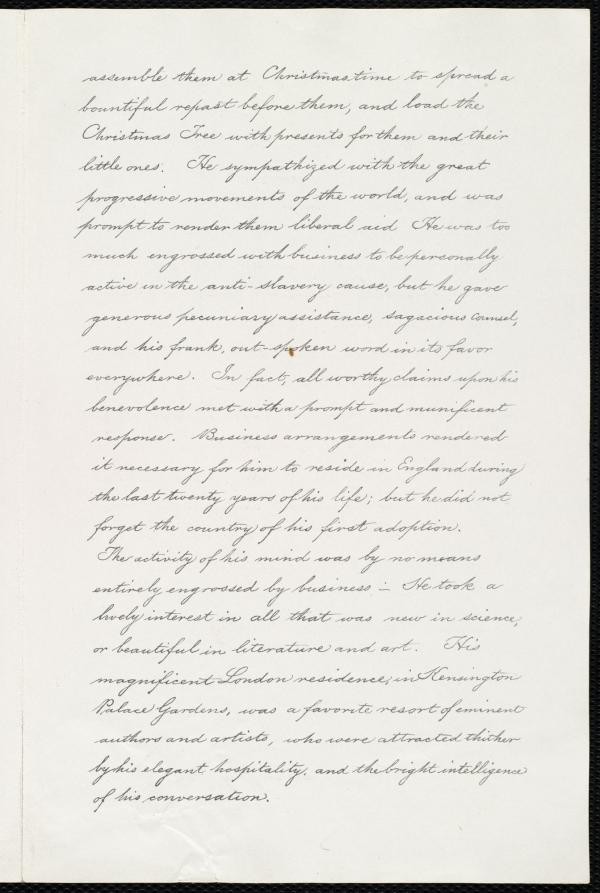 assemble them at Christmas time to spread a
bountiful repast before them, and load the
Christmas Tree with presents for them and their
little ones. He sympathized with the great
progressive movements of the world, and was
prompt to render them liberal aid He was too
much engrossed with business to be personally
active in the anti-slavery cause, but he gave
generous pecuniary assistance, sagacious counsel,
and his frank, out-spoken word in its favor
everywhere. In fact, all worthy claims upon his
benevolence met with a prompt and munificent
response. Business arrangements rendered
it necessary for him to reside in England during
the last twenty years of his life; but he did not
forget the country of his first adoption.
The activity of his mind was by no means
entirely engrossed by business:— He took a
lively interest in all that was new in science,
or beautiful in literature and art. His
magnificent London residence, in Kensington
Palace Gardens, was a favorite resort of eminent
authors and artists, who were attracted thither
by his elegant hospitality, and the bright intelligence
of his conversation.